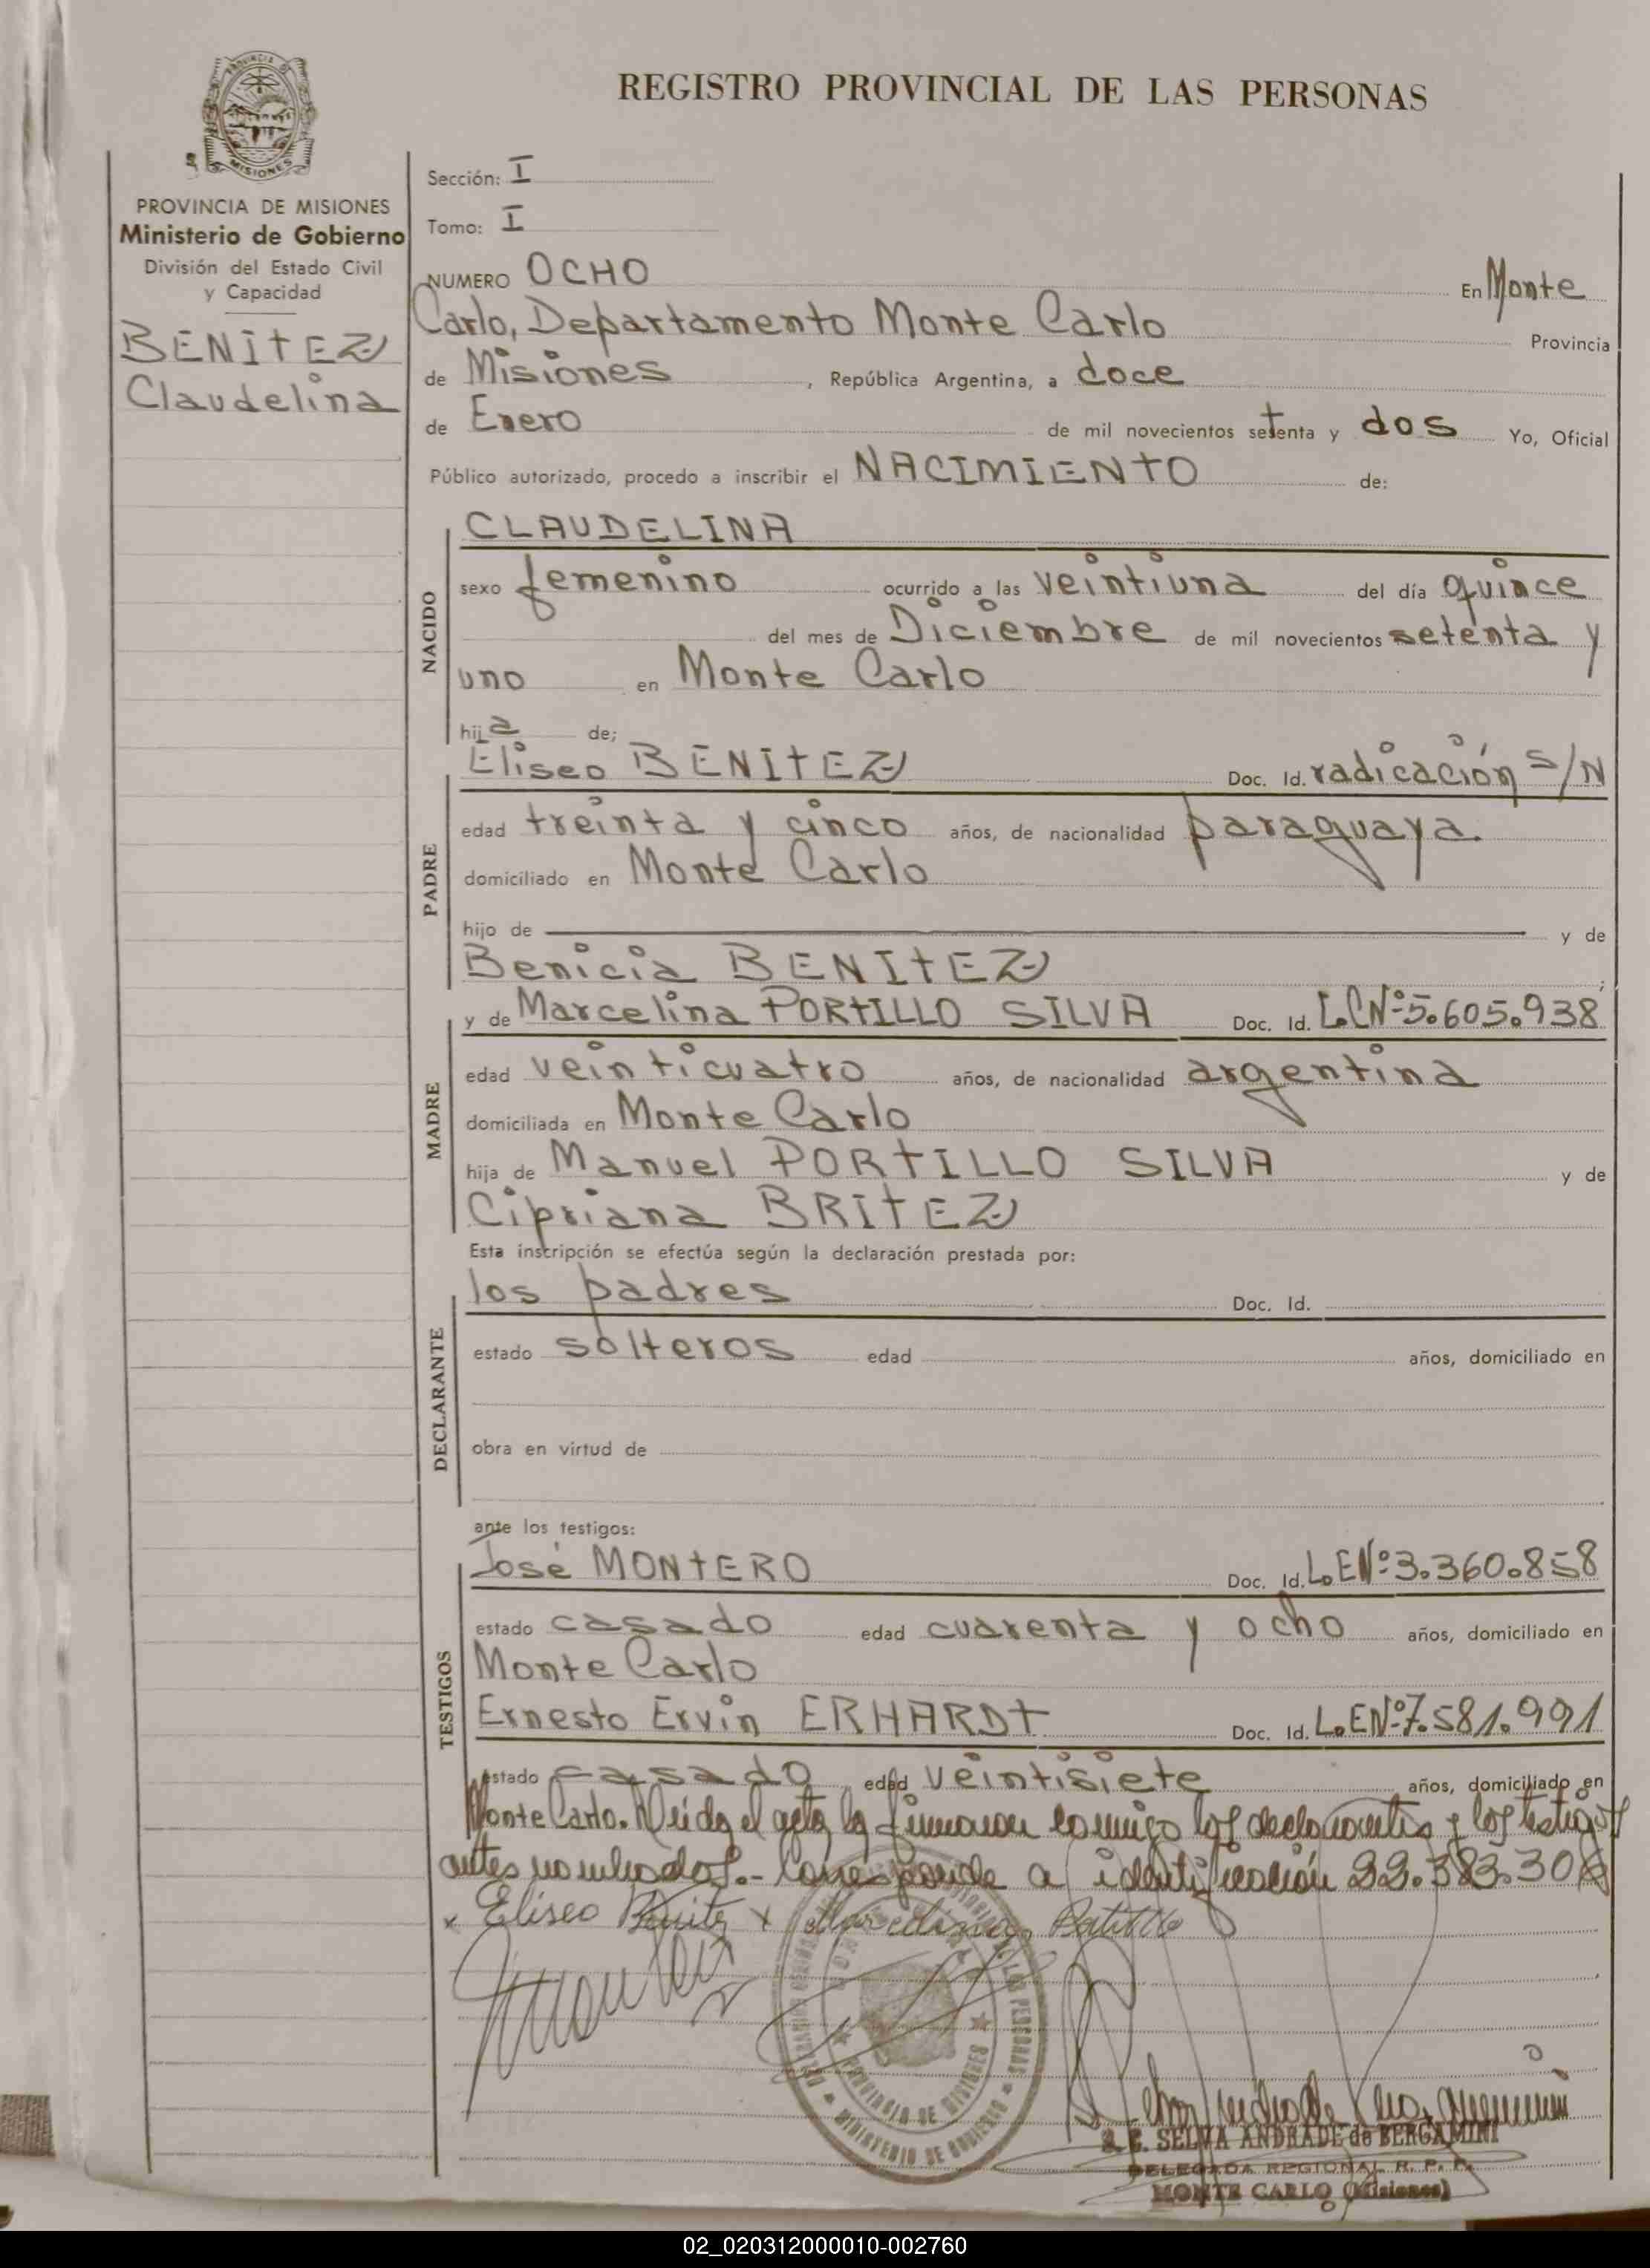 PROVINCIA DE
MISIONES
REGISTRO PROVINCIAL DE LAS PERSONAS
PROVINCIA DE MISIONES
Ministerio de Gobierno
División del Estado Civil
y Capacidad
BENITEZ
Claudelina
Sección: I
Tomo: I
NUMERO OCHO En Monte
Carlo, Departamento Monte Carlo Provincia
de Misiones, República Argentina, a doce
de Enero de mil novecientos setenta y dos Yo, Oficial
Público autorizado, procedo a inscribir el NACIMIENTO de:
NACIDO
CLAUDELINA
sexo femenino ocurrido a las veintiuna del día quince
del mes de Diciembre de mil novecientos setenta y
uno en Monte Carlo
hija de;
PADRE
Eliseo BENITEZ Doc. Id. radicación S/N
edad treinta y cinco años, de nacionalidad paraguaya.
domiciliado en Monte Carlo
hijo de y de
Benicia BENITEZ ;
MADRE
y de Marcelina PORTILLO SILVA Doc. Id. L.C.Nº5.605.938
edad veinticuatro años, de nacionalidad argentina
domiciliada en Monte Carlo
hija de Manuel PORTILLO SILVA y de
Cipriana BRITEZ
Esta inscripción se efectúa según la declaración prestada por:
DECLARANTE
los padres Doc. Id.
estado solteros edad años, domiciliado en
obra en virtud de
ante los testigos:
TESTIGOS
José MONTERO Doc. Id. L.E.Nº3.360.858
estado casado edad cuarenta y ocho años, domiciliado en
Monte Carlo
Ernesto Ervin ERHARDT Doc. Id. L.E.Nº7.581.991
estado casado edad veintisiete años, domiciliado en
Monte Carlo. Leída el acta la firmaron conmigo los declarantes y los testigos
antes nombrados.- Corresponde a identificación 22.383.306
x Eliseo Benitez x Marcelina Portillo
PROVINCIA DE MISIONES
MINISTERIO DE GOBIERNO
S. E. SELVA ANDRADE de BERGAMINI
DELEGADA REGIONAL R. P. P.
MONTE CARLO (Misiones)
02_020312000010-002760